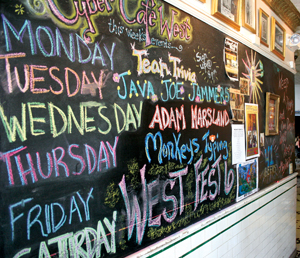 Cyber Café West
this week's
MONDAY
TUESDAY Team Trivia
WEDNESDAY JAVA JOE JAMMERS
THURSDAY ADAM MARSLAND
FRIDAY Monkeys Typing
SATURDAY WEST FEST